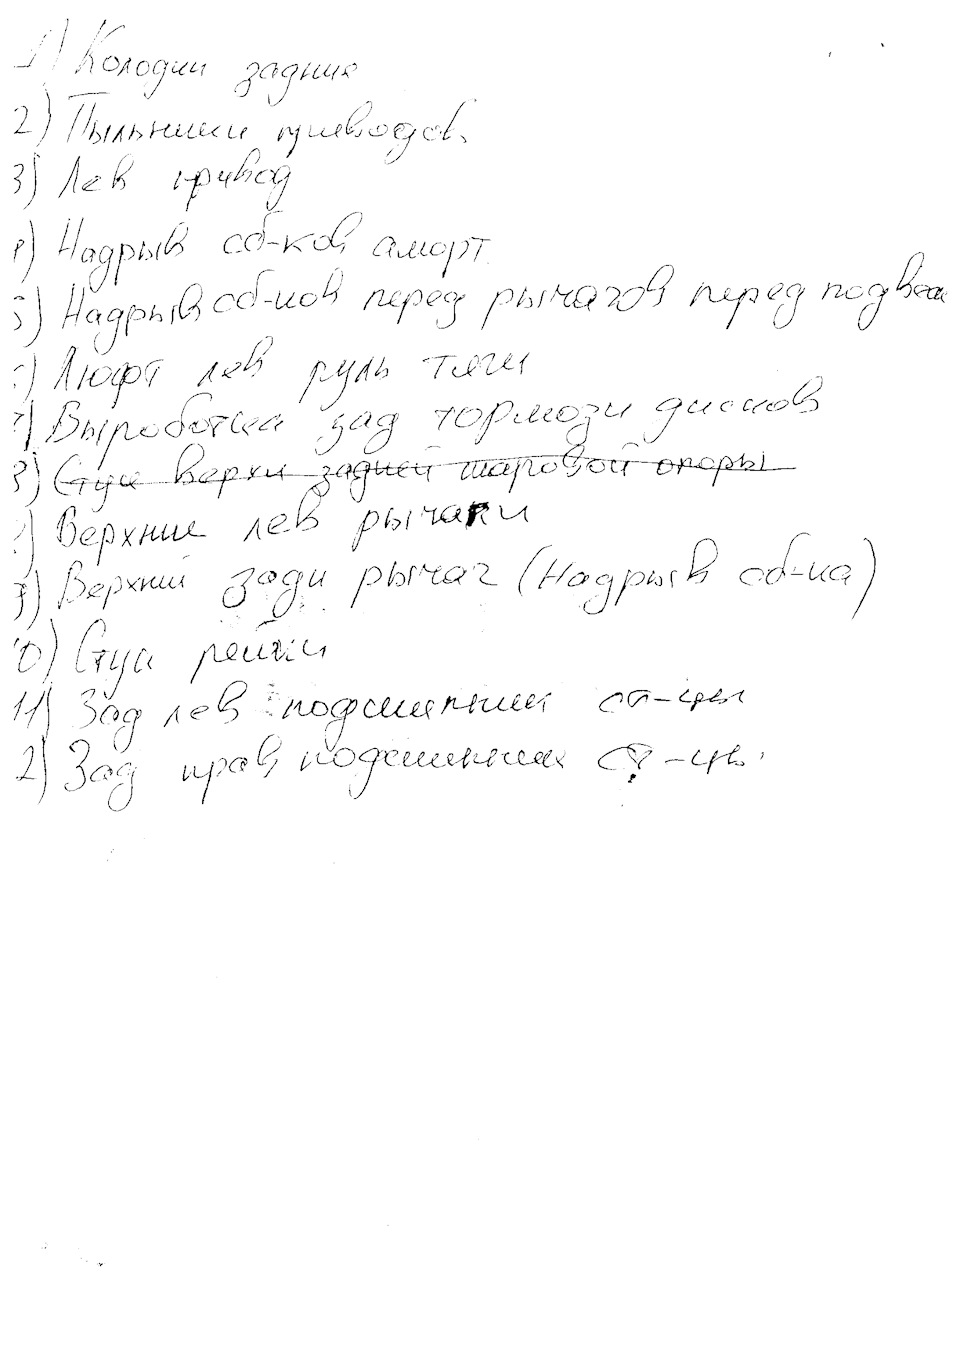 1) Колодки задние
2) Пыльники приводов
3) Лев привод
4) Надрыв сб-ков аморт.
5) Надрыв сб-ков перед рычагов перед подвес
6) Люфт лев руль тяги
7) Выработка зад тормозн дисков
8) Стук верхн задней шаровой опоры
) Верхние лев рычаги
9) Верхний задн рычаг (Надрыв сб-ка)
10) Стук рейки
11) Зад лев подшипник ст-цы
12) Зад прав подшипник ст-цы